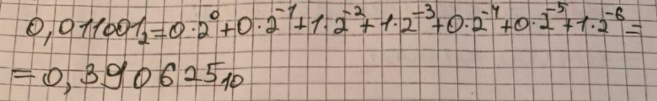 0,011001₂=0·2⁰+0·2⁻¹+1·2⁻²+1·2⁻³+0·2⁻⁴+0·2⁻⁵+1·2⁻⁶=
=0,390625₁₀